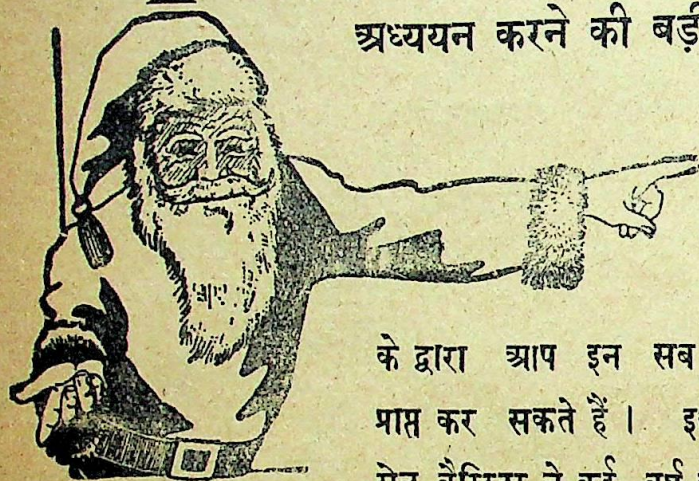 अध्ययन करने की बड़ी
के द्वारा आप इन सब
प्राप्त कर सकते हैं। इ